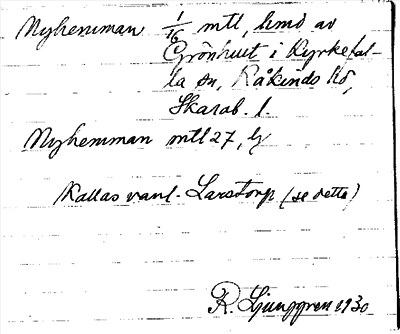 Nyhemman 1/16 mtl, hmd av
Grönhult i Kyrkefal-
la sn, Kåkinds hd,
Skarab. l.
Nyhemman mtl 27, ly
Kallas vanl. Larstorp (se detta)
R. Ljunggren 1930